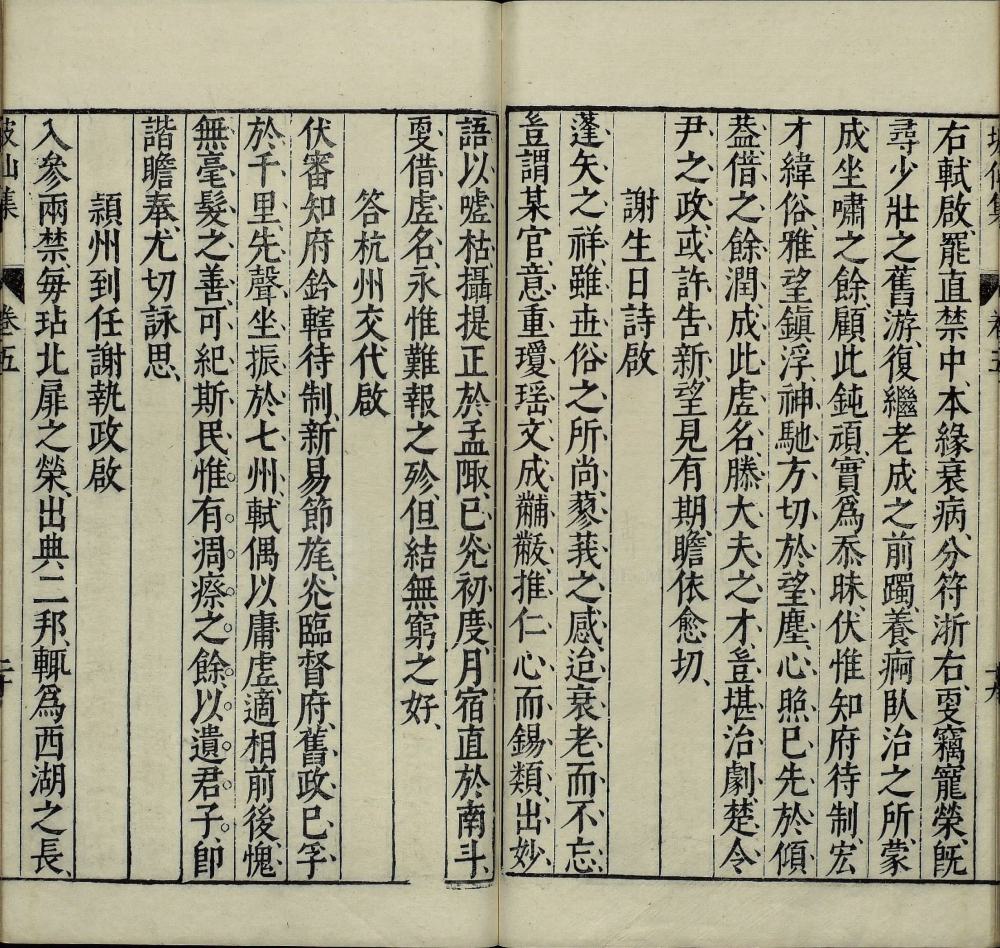 坡仙集 卷五 十九
右軾啟、罷直禁中、本緣衰病、分符浙右、叟竊寵榮、旣
尋少壯之舊游、復繼老成之前躅、養痾臥治之所、蒙
成坐嘯之餘、顧此鈍頑、實爲忝昧、伏惟知府待制、宏
才緯俗、雅望鎮浮、神馳方切於望塵、心照已先於傾
葢、借之餘潤、成此虗名、滕大夫之才、豈堪治劇、楚令
尹之政、或許告新、望見有期、瞻依愈切、
謝生日詩啟
蓬矢之祥、雖丗俗之所尚、蓼莪之感、迨衰老而不忘、
豈謂某官、意重瓊瑤、文成黼黻、推仁心而錫類、出妙
語以噓枯、攝提正於孟陬、已灮初度、月宿直於南斗、
叟借虗名、永惟難報之珍、但結無窮之好、
答杭州交代啟
伏審知府鈐轄待制、新易節旄、灮臨督府、舊政已孚
於千里、先聲坐振於七州、軾偶以庸虗、適相前後、愧
無毫髮之善、可紀斯民、惟有凋瘵之餘、以遺君子、卽
諧瞻奉、尤切詠思、
頴州到任謝執政啟
入參兩禁、每玷北扉之榮、出典二邦、輒爲西湖之長、
坡仙集 卷五 二十